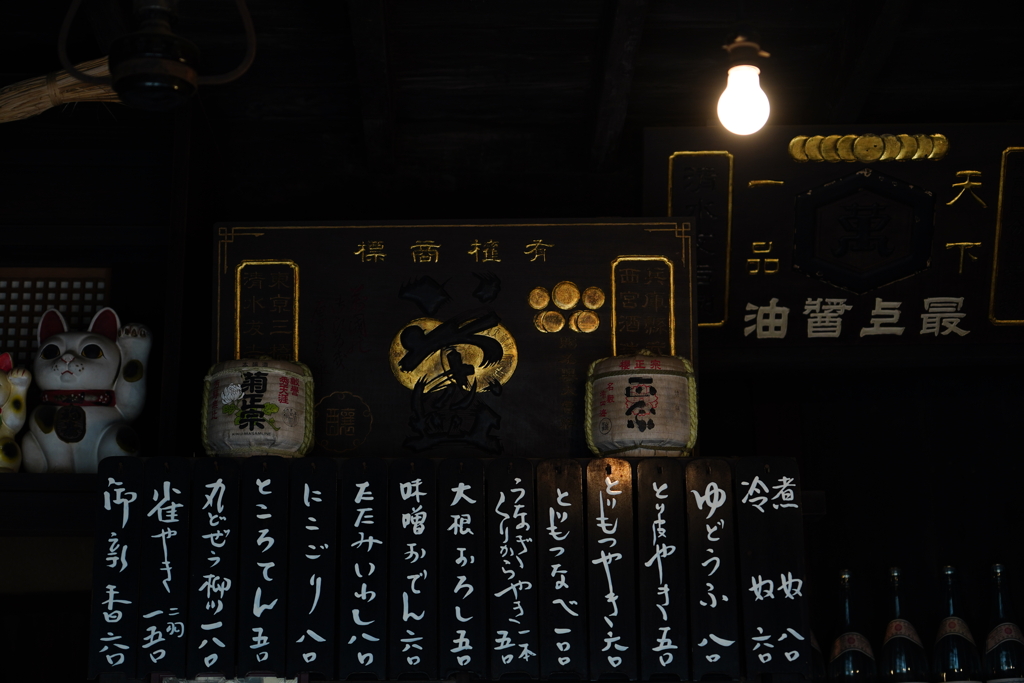 有権商標
天下
一品
最上醤油
菊正宗
煮奴八〇
冷奴六〇
ゆどうふ八〇
とり皮やき五〇
とりもつやき六〇
とりもつなべ一〇〇
うなぎくりからやき一本五〇
大根おろし五〇
味噌おでん六〇
たたみいわし八〇
にこごり八〇
ところてん五〇
丸どぜう柳川一八〇
雀やき二羽一五〇
御新香六〇